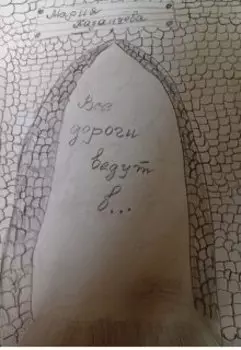 Мария
Казанцева
Все
дороги
ведут
в...